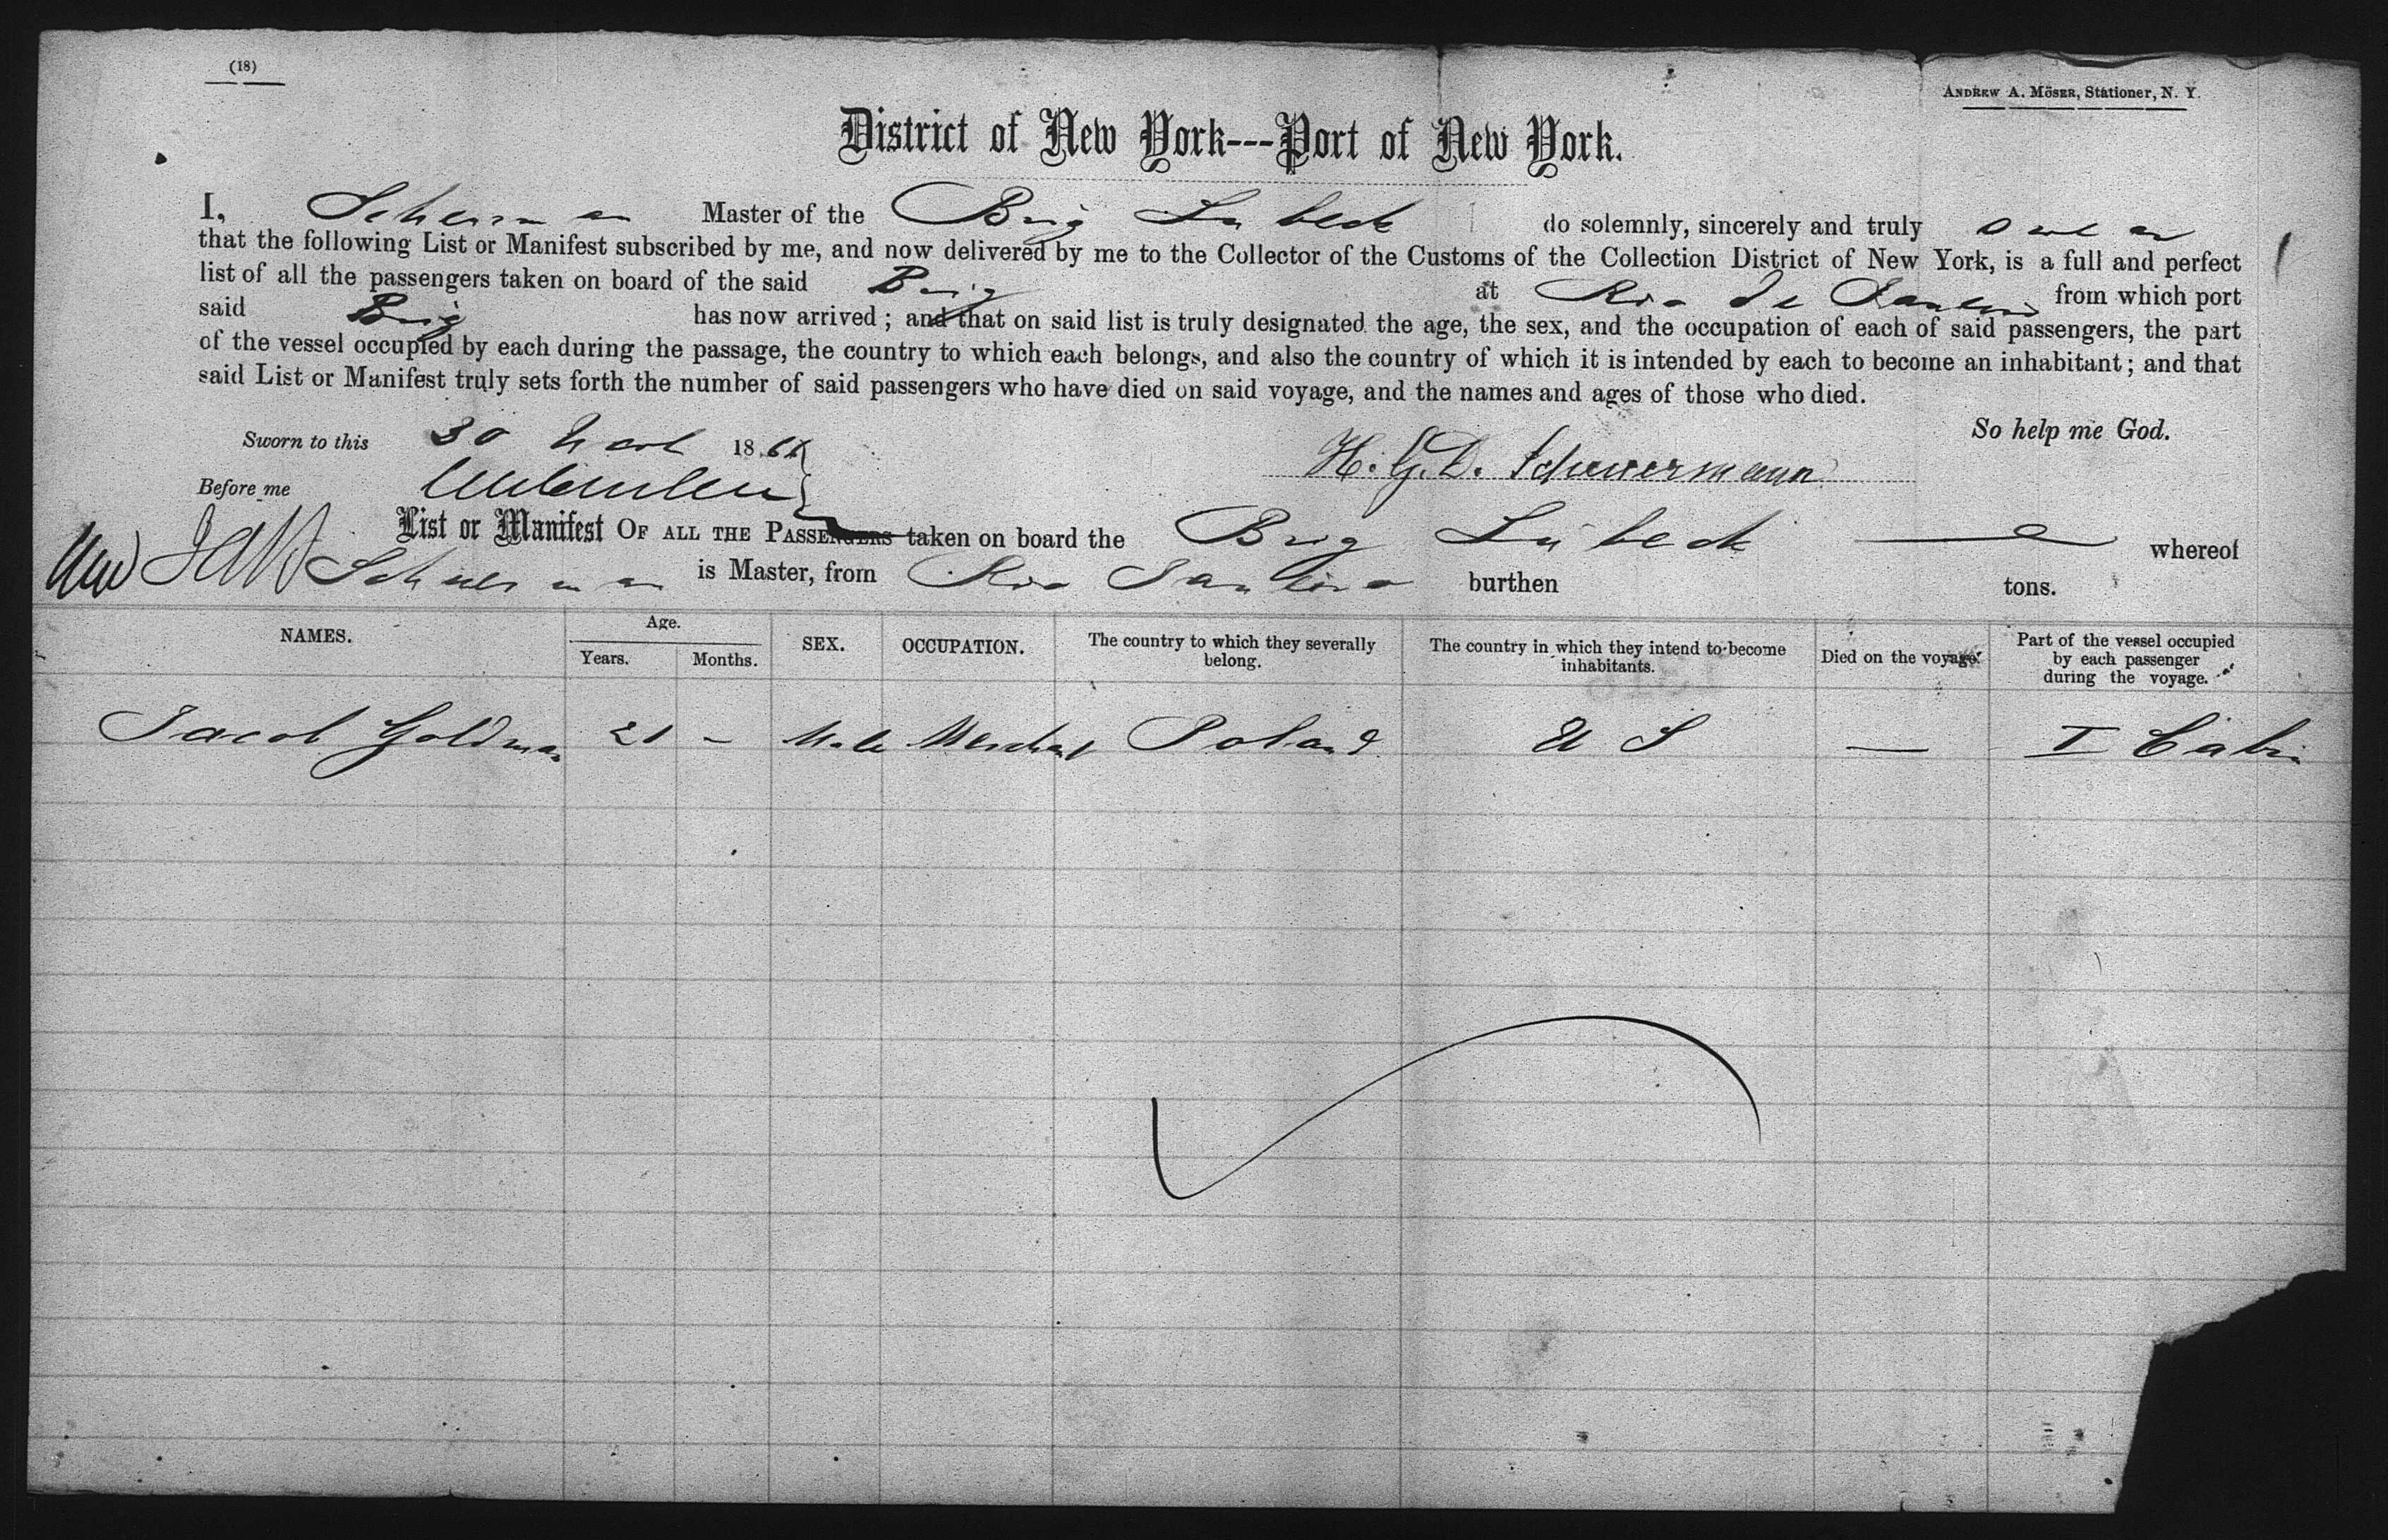 (18)
ANDREW A. MÖSER, Stationer, N. Y.
District of New York---Port of New York.
I, Scherman Master of the Brig Lubeck do solemnly, sincerely and truly swear
that the following List or Manifest subscribed by me, and now delivered by me to the Collector of the Customs of the Collection District of New York, is a full and perfect
list of all the passengers taken on board of the said Brig at Rio de Janeiro from which port
said Brig has now arrived; and that on said list is truly designated the age, the sex, and the occupation of each of said passengers, the part
of the vessel occupied by each during the passage, the country to which each belongs, and also the country of which it is intended by each to become an inhabitant; and that
said List or Manifest truly sets forth the number of said passengers who have died on said voyage, and the names and ages of those who died.
So help me God.
Sworn to this 30 186
H. G. D. Schuermann
Before me
List or Manifest OF ALL THE PASSENGERS taken on board the Brig Lübeck whereof
Schuerman is Master, from Rio Janeiro burthen tons.
NAMES. Age. Years. Months. SEX. OCCUPATION. The country to which they severally belong. The country in which they intend to become inhabitants. Died on the voyage. Part of the vessel occupied by each passenger during the voyage.
Jacob Goldman 21 - Male Merchant Poland U S — I Cabin